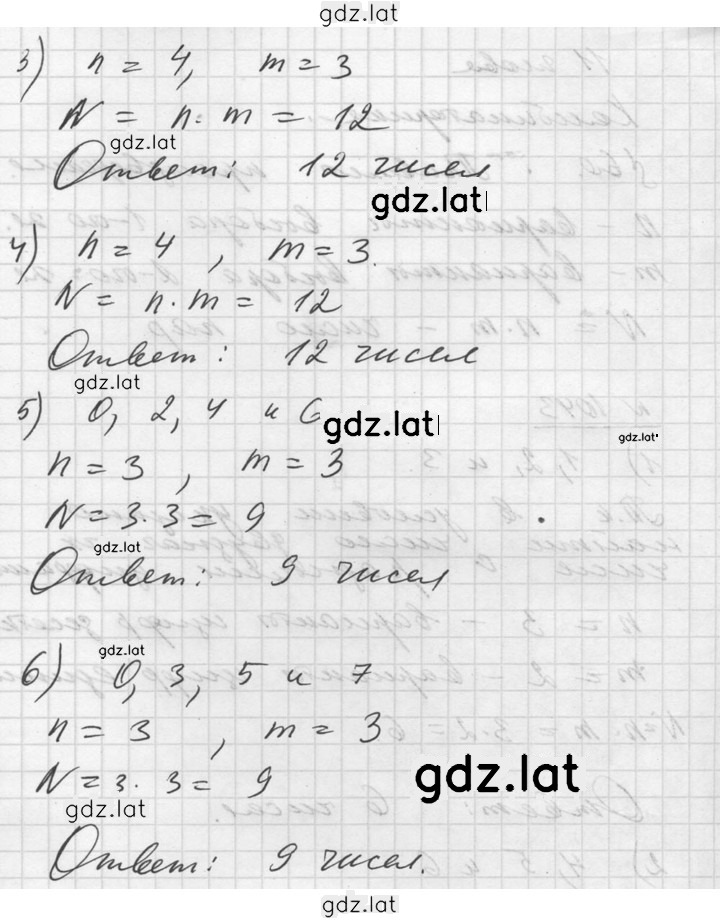 gdz.lat
3) n = 4, m = 3
N = n · m = 12
gdz.lat
Ответ: 12 чисел
gdz.lat
4) n = 4 , m = 3.
N = n · m = 12
Ответ: 12 чисел
gdz.lat
5) 0, 2, 4 и 6
gdz.lat
gdz.lat
n = 3 , m = 3
N = 3 · 3 = 9
gdz.lat
Ответ: 9 чисел
gdz.lat
6) 0, 3, 5 и 7
n = 3 , m = 3
N = 3 · 3 = 9
gdz.lat
gdz.lat
Ответ: 9 чисел.
gdz.lat